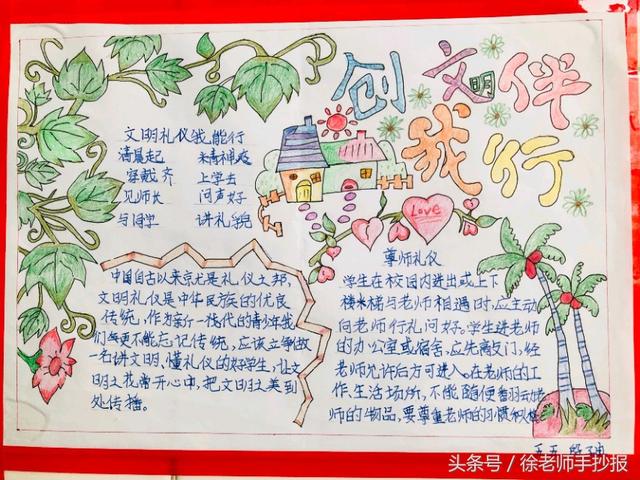 创文明伴
我行
文明礼仪我能行
清晨起 精神爽
穿戴齐 上学去
见师长 问声好
与同学 讲礼貌
中国自古以来就是礼仪之邦,
文明礼仪是中华民族的优良
传统,作为新一代的青少年我
们更不能忘记传统,应该立争做
一名讲文明、懂礼仪的好学生,让文
明之花常开心中,把文明之美到
处传播。
Love
尊师礼仪
学生在校园内进出或上下
楼梯与老师相遇时,应主动
向老师行礼问好。学生进老师
的办公室或宿舍,应先敲门,经
老师允许后方可进入。在老师的工
作、生活场所,不能随便翻动老
师的物品,要尊重老师的习惯和
头条号/徐老师手抄报